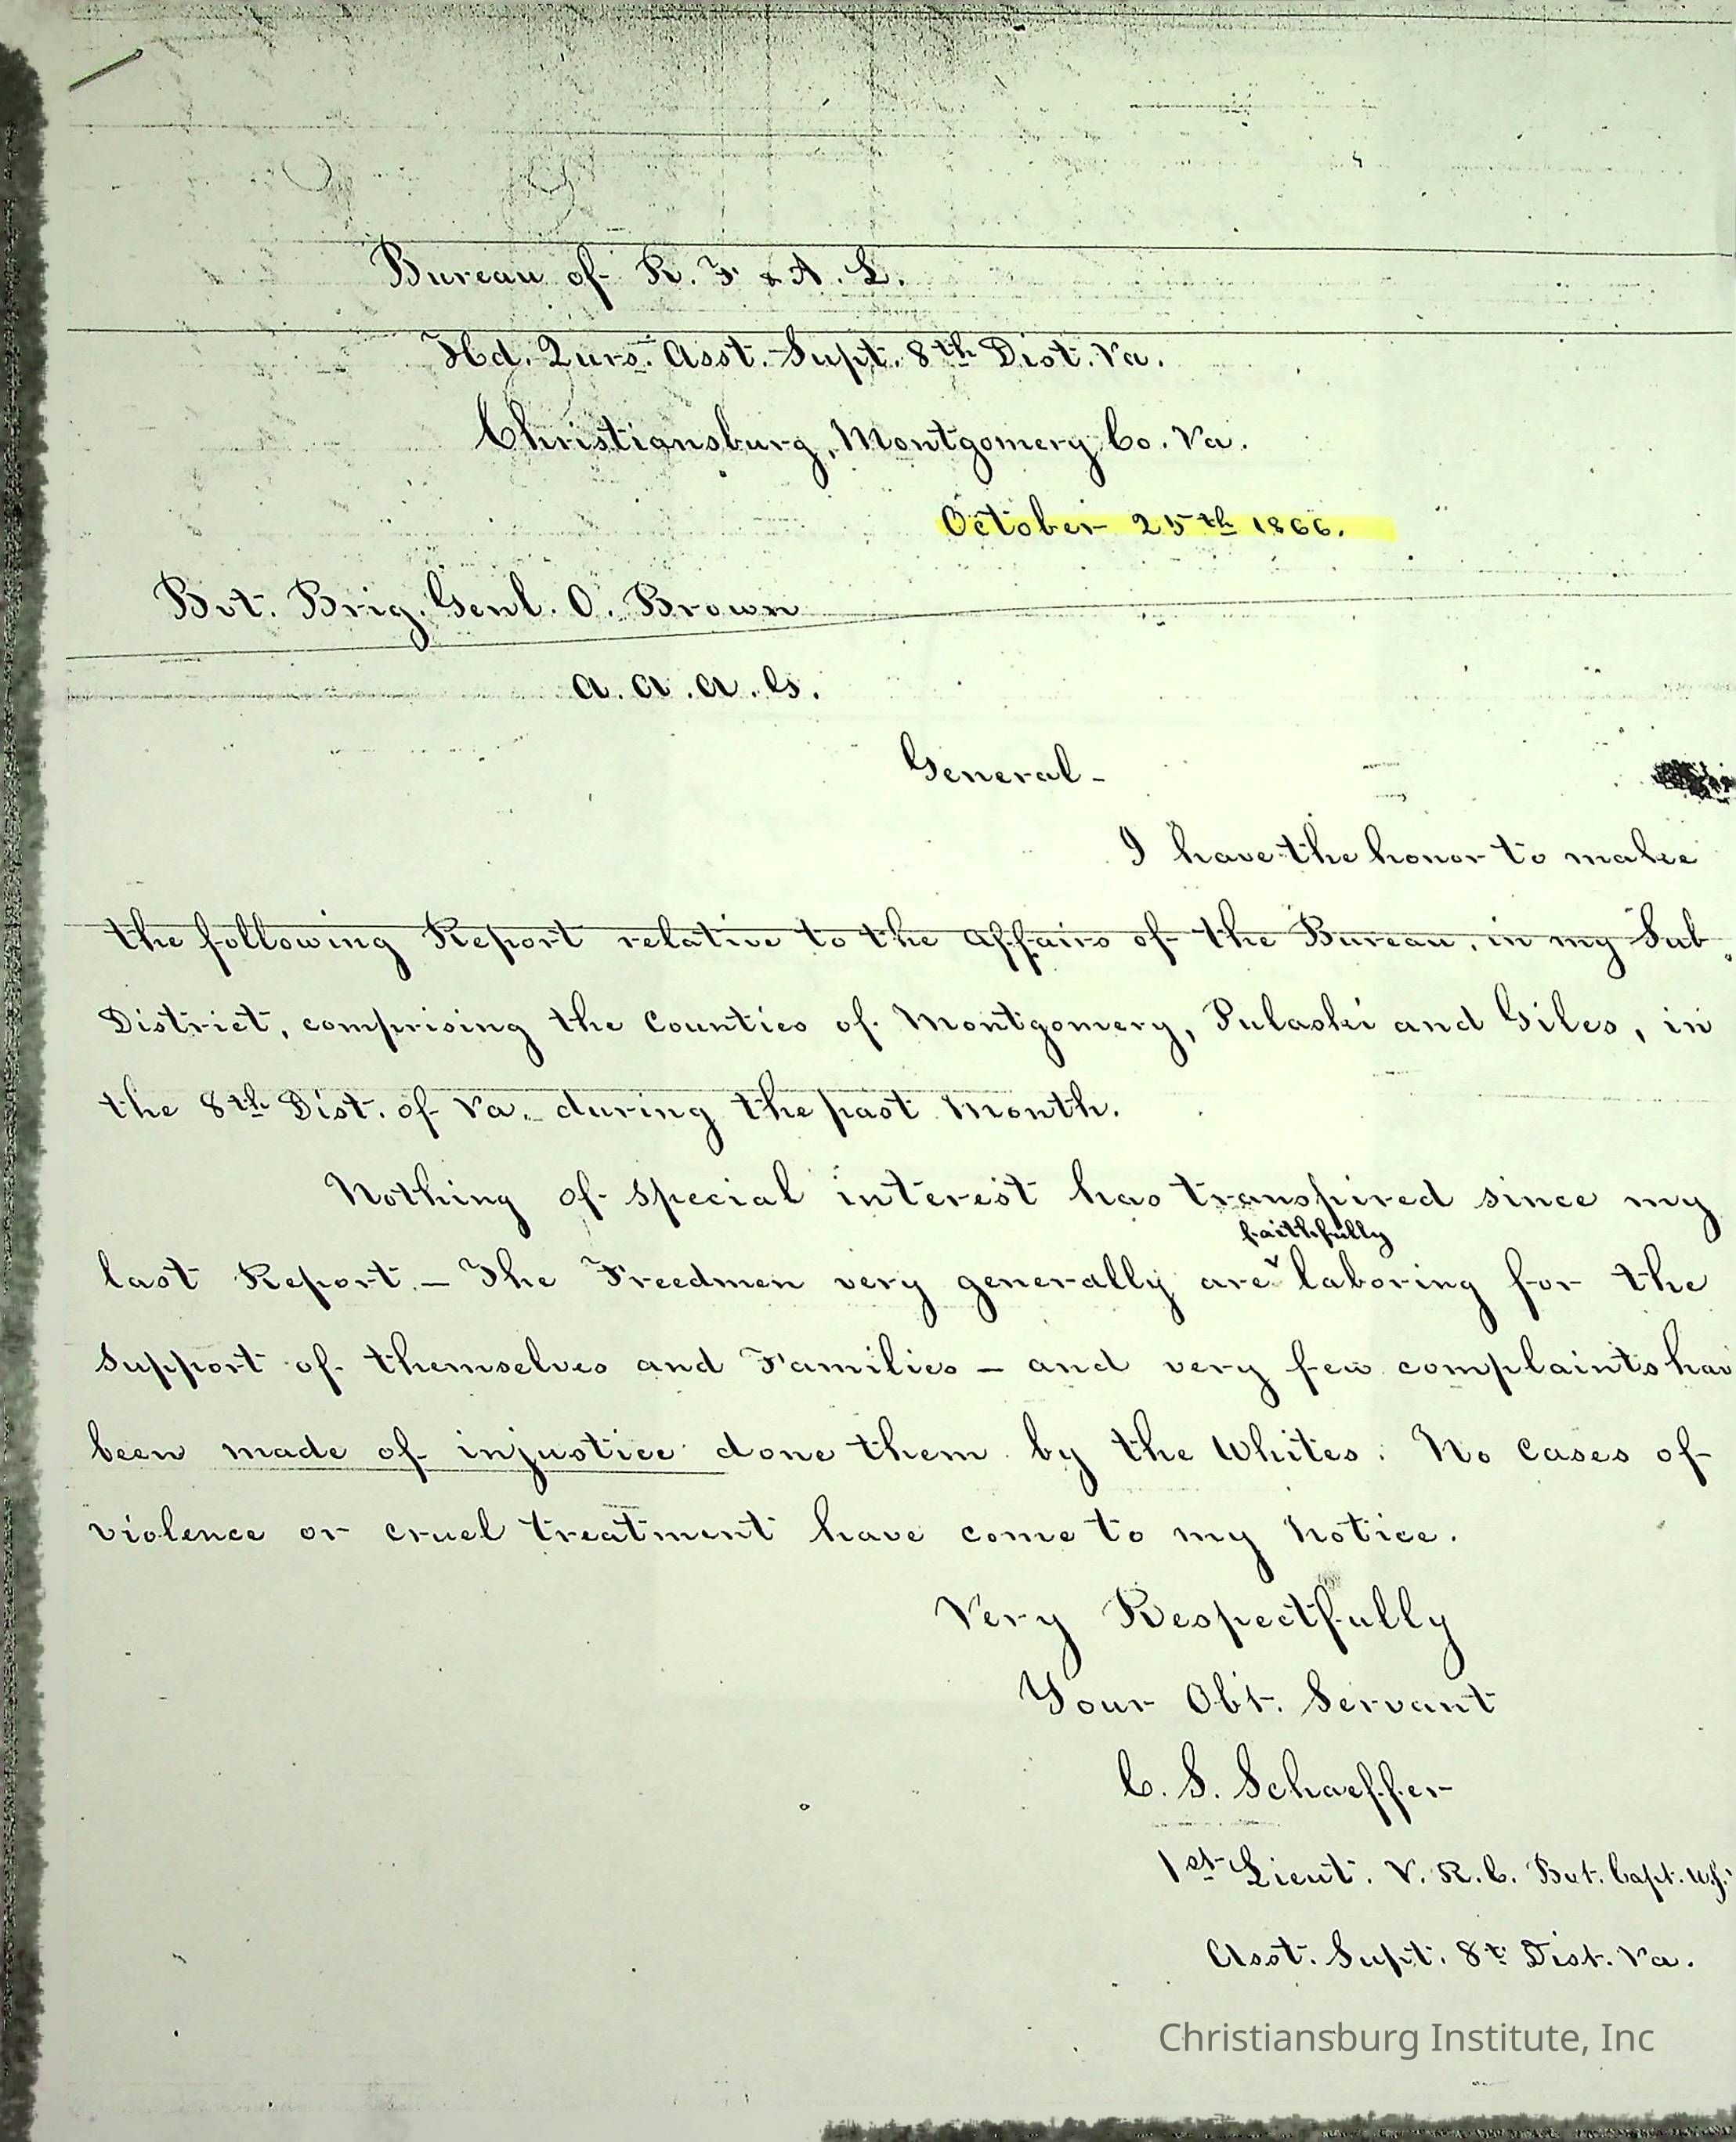 Bureau of R. F & A. L.
Hd. Qurs. Asst. Supt. 8th Dist. Va.
Christiansburg, Montgomery Co. Va.
October 25th 1866.
Bvt. Brig. Genl. O. Brown
A. A. A. G.
General -
I have the honor to make
the following Report relative to the Affairs of the Bureau, in my Sub
District, comprising the Counties of Montgomery, Pulaski and Giles, in
the 8th Dist. of Va. during the past Month.
Nothing of special interest has transpired since my
faithfully
last Report. – The Freedmen very generally are laboring for the
support of themselves and Families – and very few complaints hav
been made of injustice done them by the Whites. No Cases of
violence or cruel treatment have come to my Notice.
Very Respectfully
Your Obt. Servant
C. S. Schaeffer
1st Lieut. V. R. C. Bvt. Capt. U.S.
Asst. Supt. 8t Dist. Va.
Christiansburg Institute, Inc